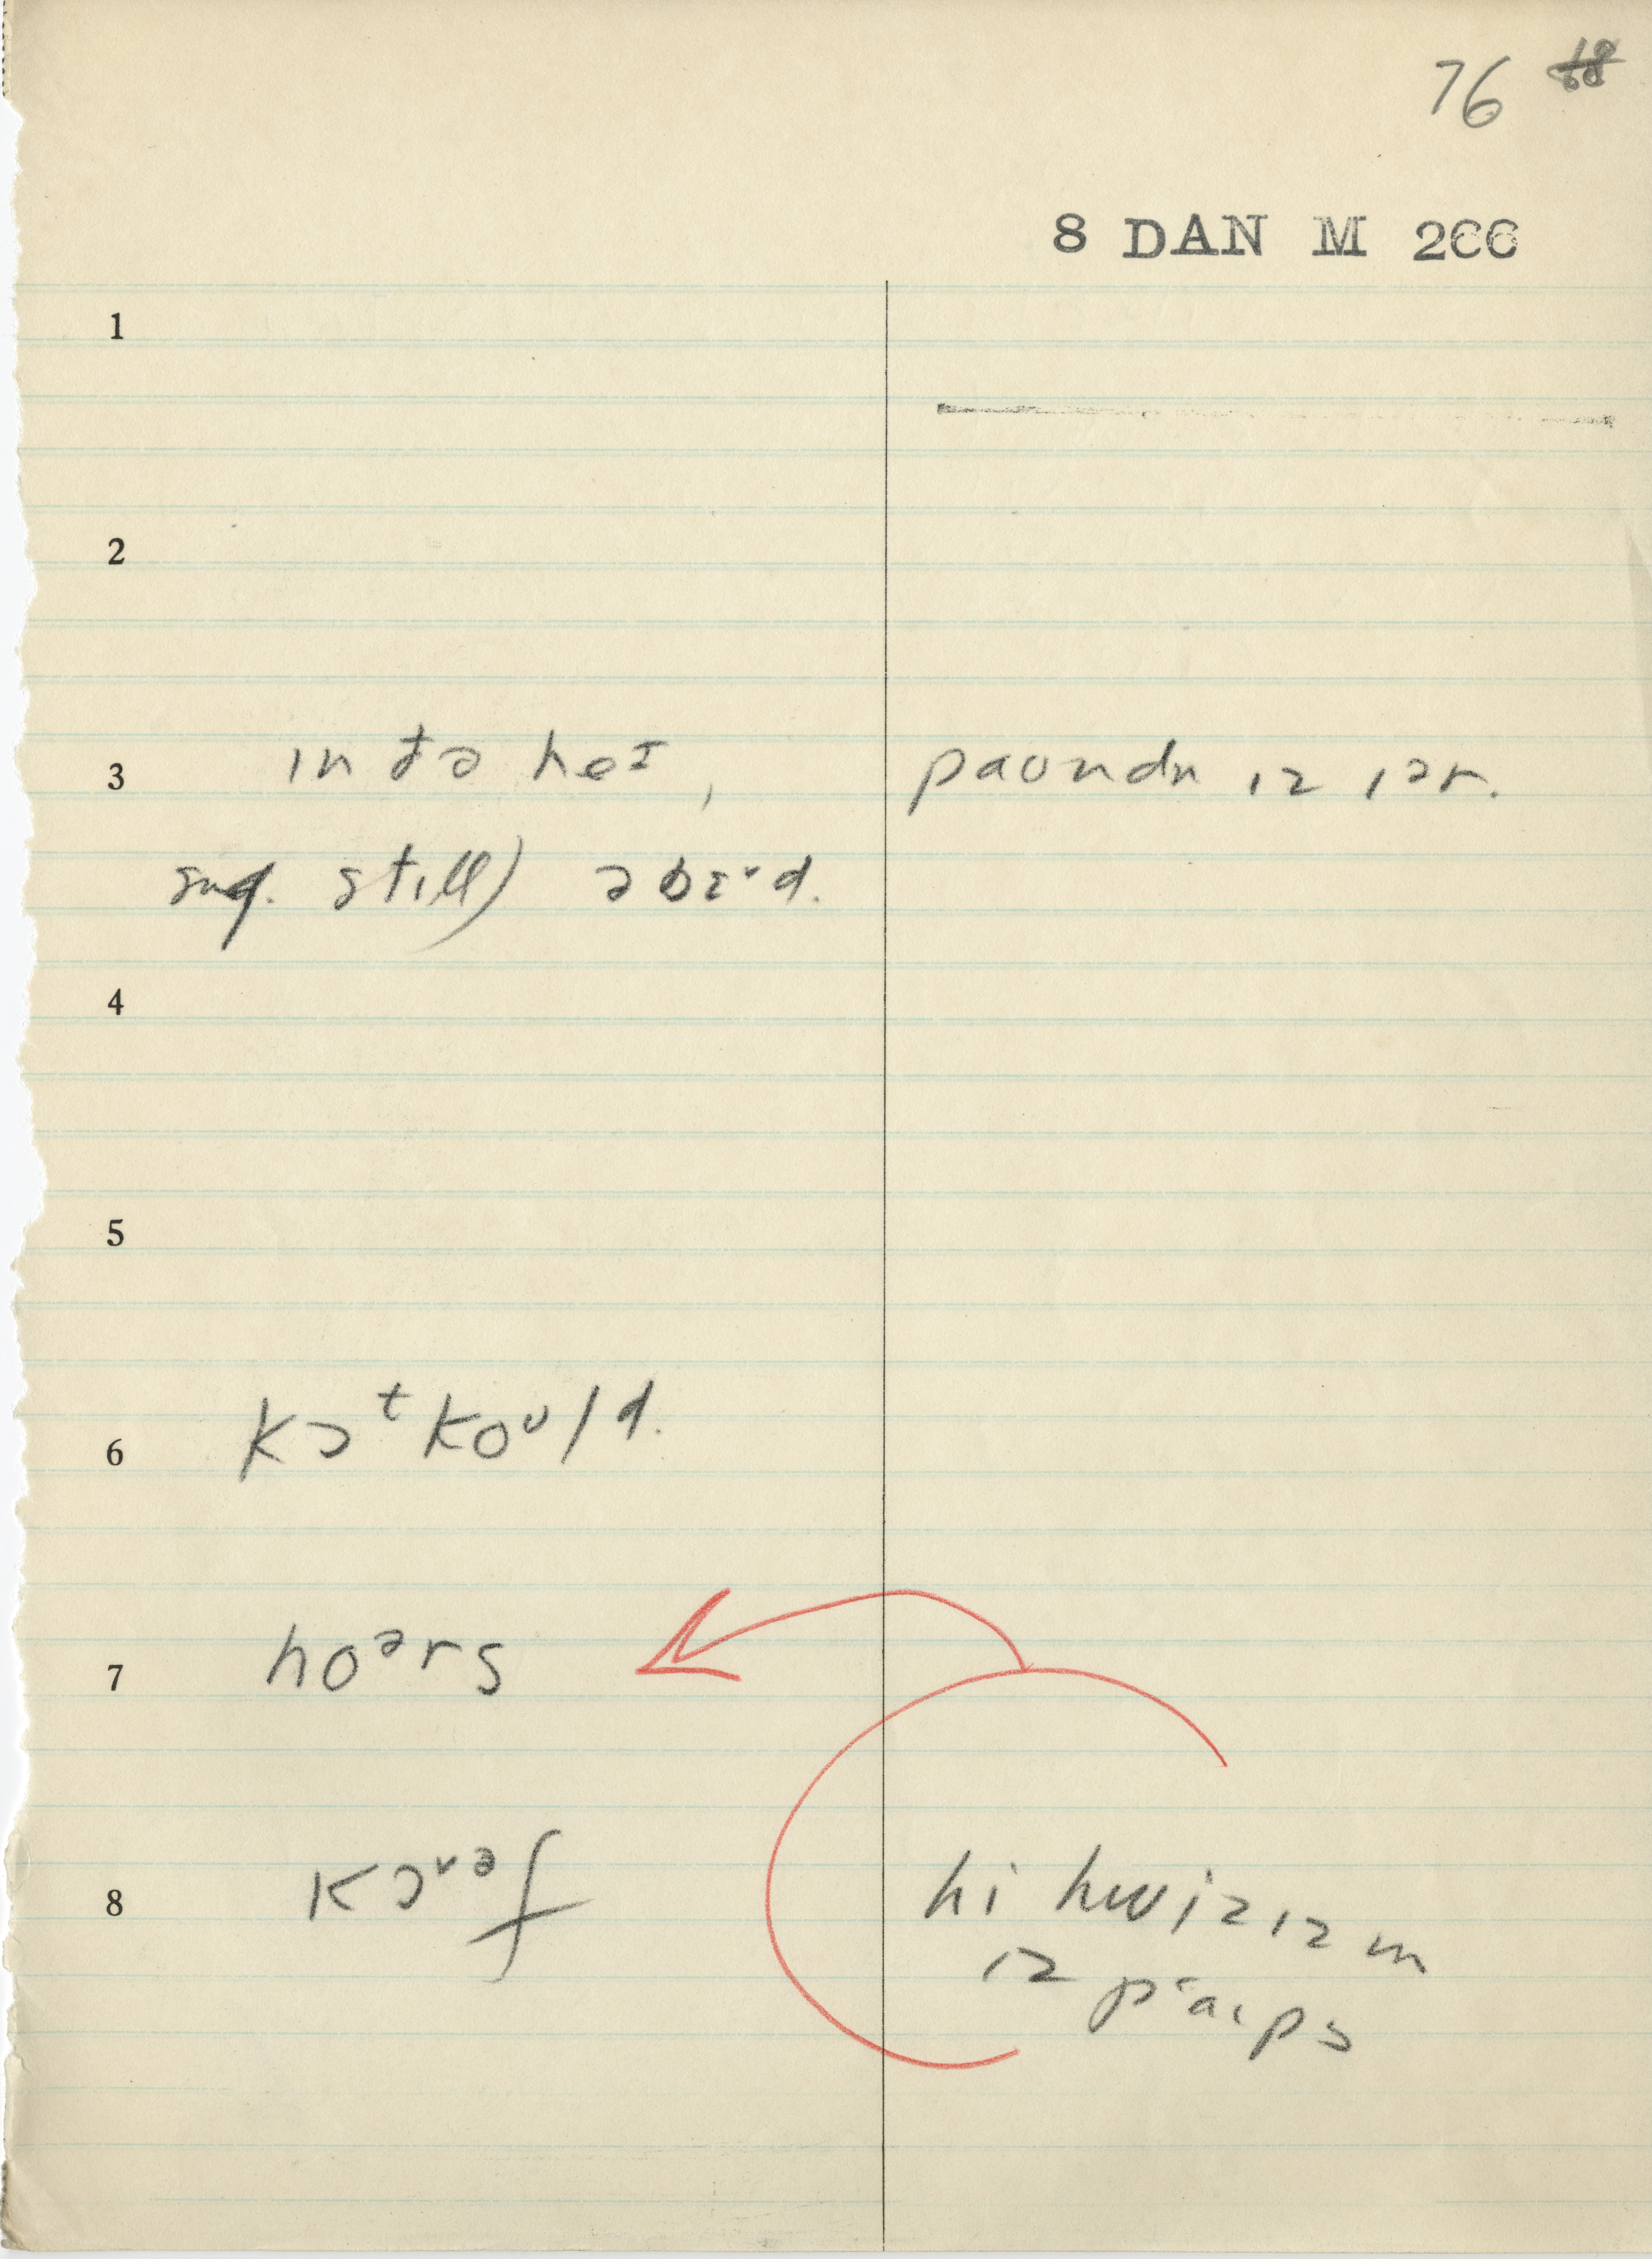 76
8 DAN M 266
1
2
3 ɪn ðə heɪ, paʊndn ɪz ɪər.
sug. still) əbɜd.
4
5
6 kɔᵗkoᵘld.
7 hoᵊrs
8 kɔᵛᵊf hi hwizɪz m
ɪz paɪps